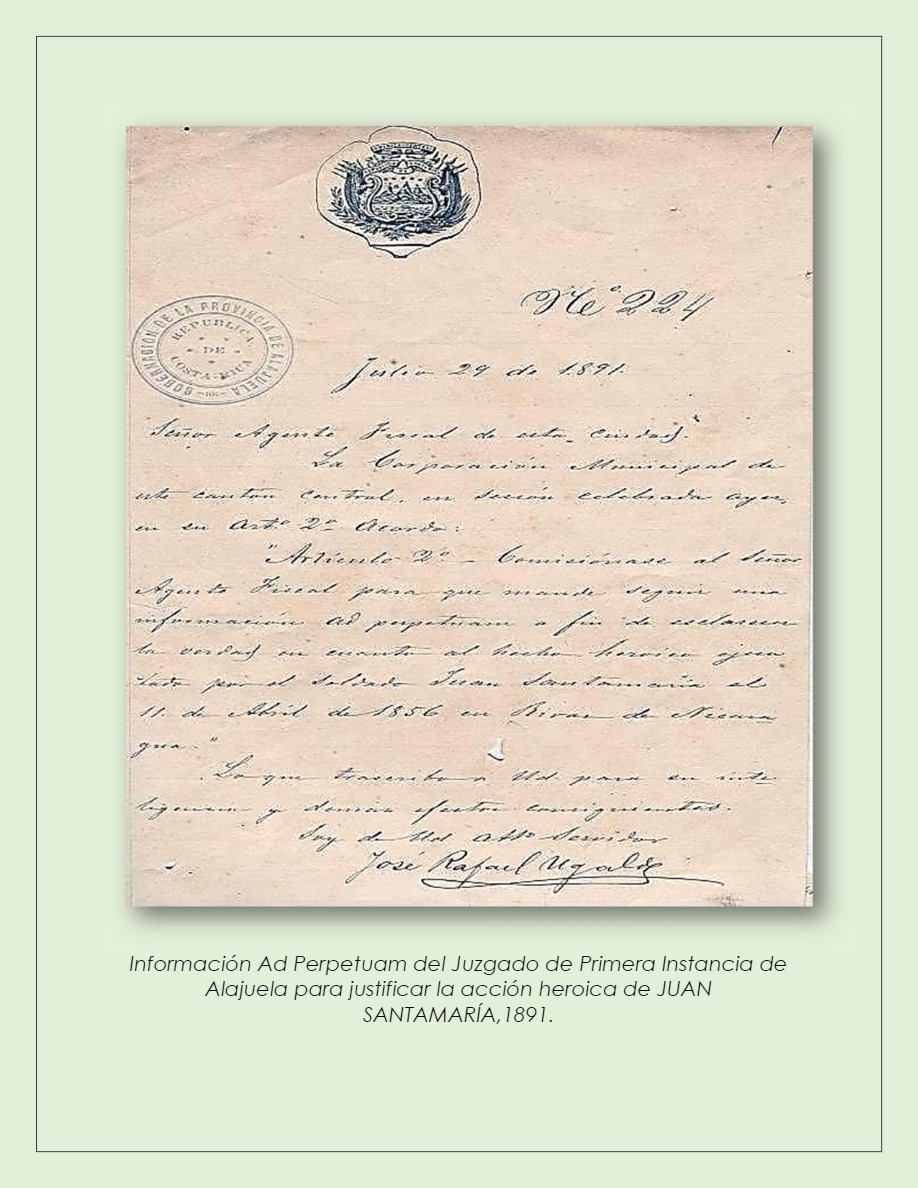 Nº 224
GOBERNACION DE LA PROVINCIA DE ALAJUELA
REPUBLICA
DE
COSTA-RICA
Julio 29 de 1891.
Señor Agente Fiscal de esta ciudad.
La Corporación Municipal de
este cantón central, en sesión celebrada ayer,
en su Artº 2º Acordo:
"Artículo 2º – Comisiónase al Señor
Agente Fiscal para que mande seguir una
información ad perpetuam a fin de esclarecer
la verdad en cuanto al hecho heroico ejecu
tado por el soldado Juan Santamaría el
11 de Abril de 1856 en Rivas de Nicara
gua."
Lo que trascribo a Ud para su inte
ligencia y demas efectos consiguientes.
Soy de Ud attº Servidor
José Rafael Ugalde
Información Ad Perpetuam del Juzgado de Primera Instancia de
Alajuela para justificar la acción heroica de JUAN
SANTAMARÍA,1891.